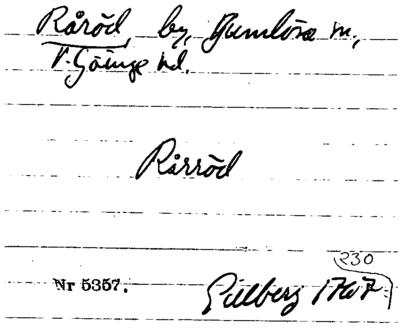 Råröd, by, Gumlösa sn,
V. Göinge hd.
Rårröd
230
Nr 5357. Gillberg 1767